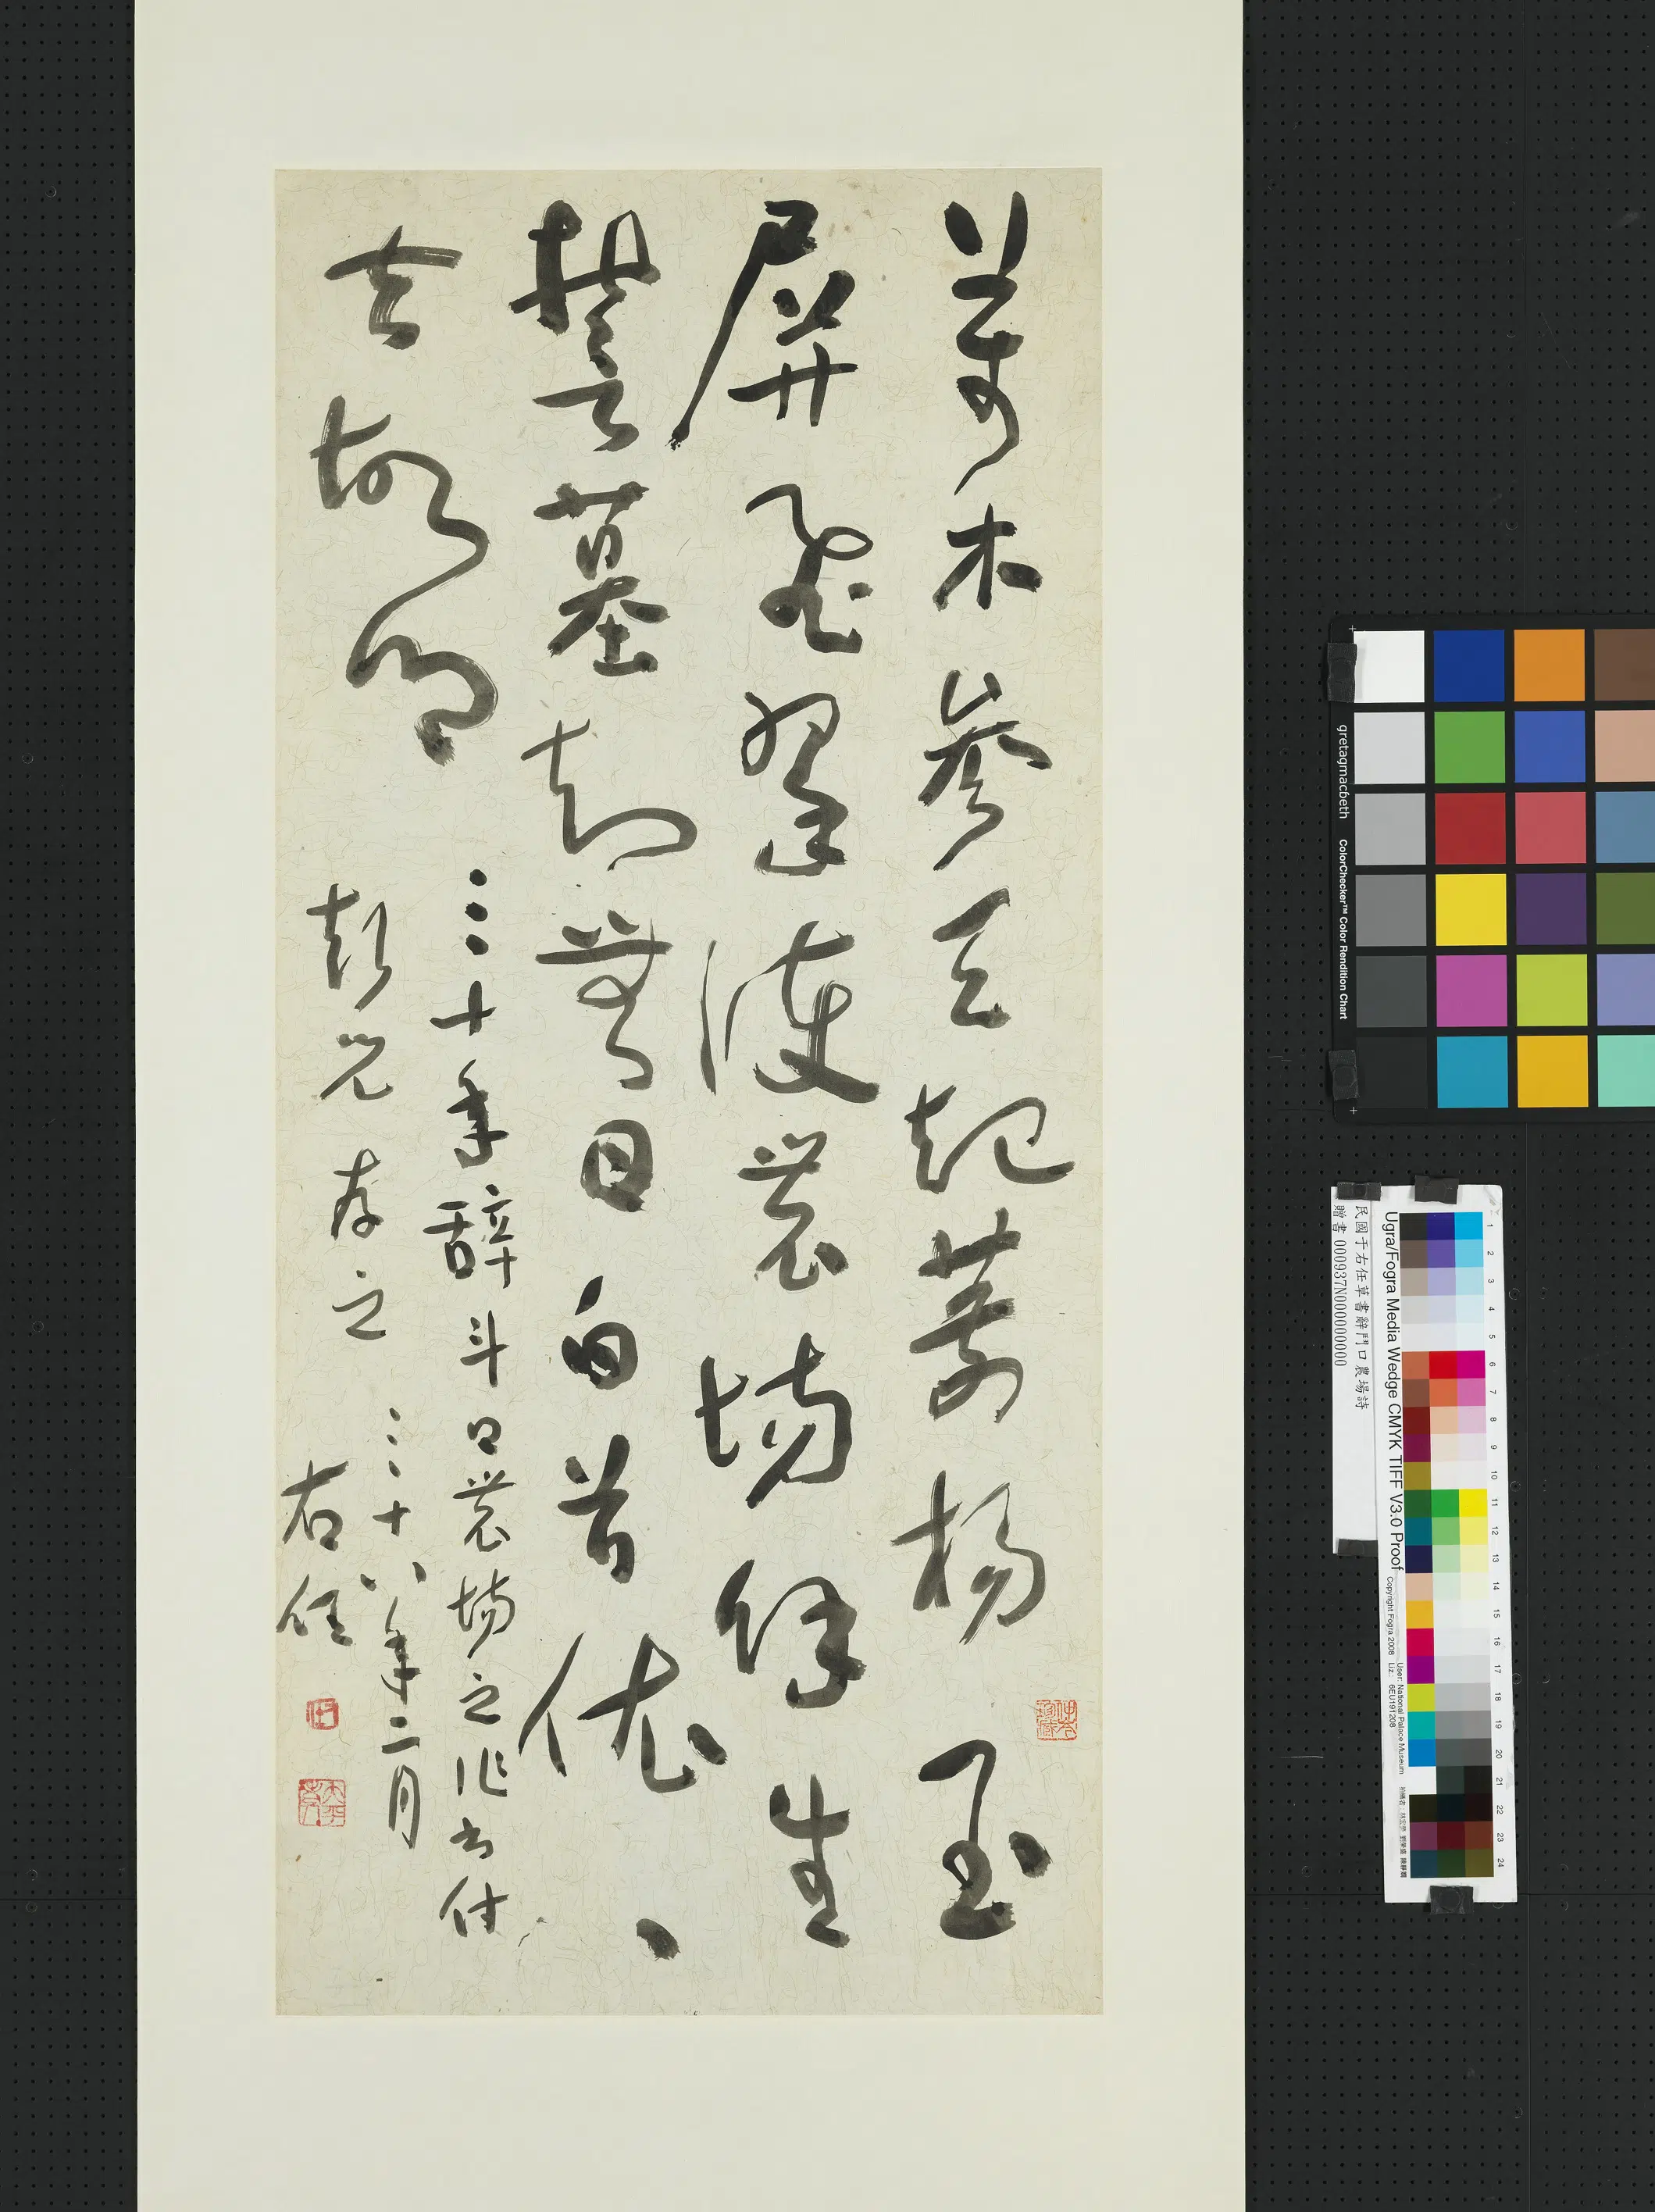 萬木參天起楊玉
屏飛翠護農場餘生
誓墓知無日白首依、
去故鄉
三十年辭斗口農場之作書付
兄存之
三十八年二月
右任
gretagmacbeth
ColorChecker™ Color Rendition Chart
民國于右任草書辭鬥口農場詩
贈書 000937N000000000
Ugra/Fogra Media Wedge CMYK TIFF V3.0 Proof
Copyright Fogra 2008
User: National Palace Museum
Liz.: 6EU191208
1
2
3
4
5
6
7
8
9
10
11
12
13
14
15
16
17
18
19
20
21
22
23
24